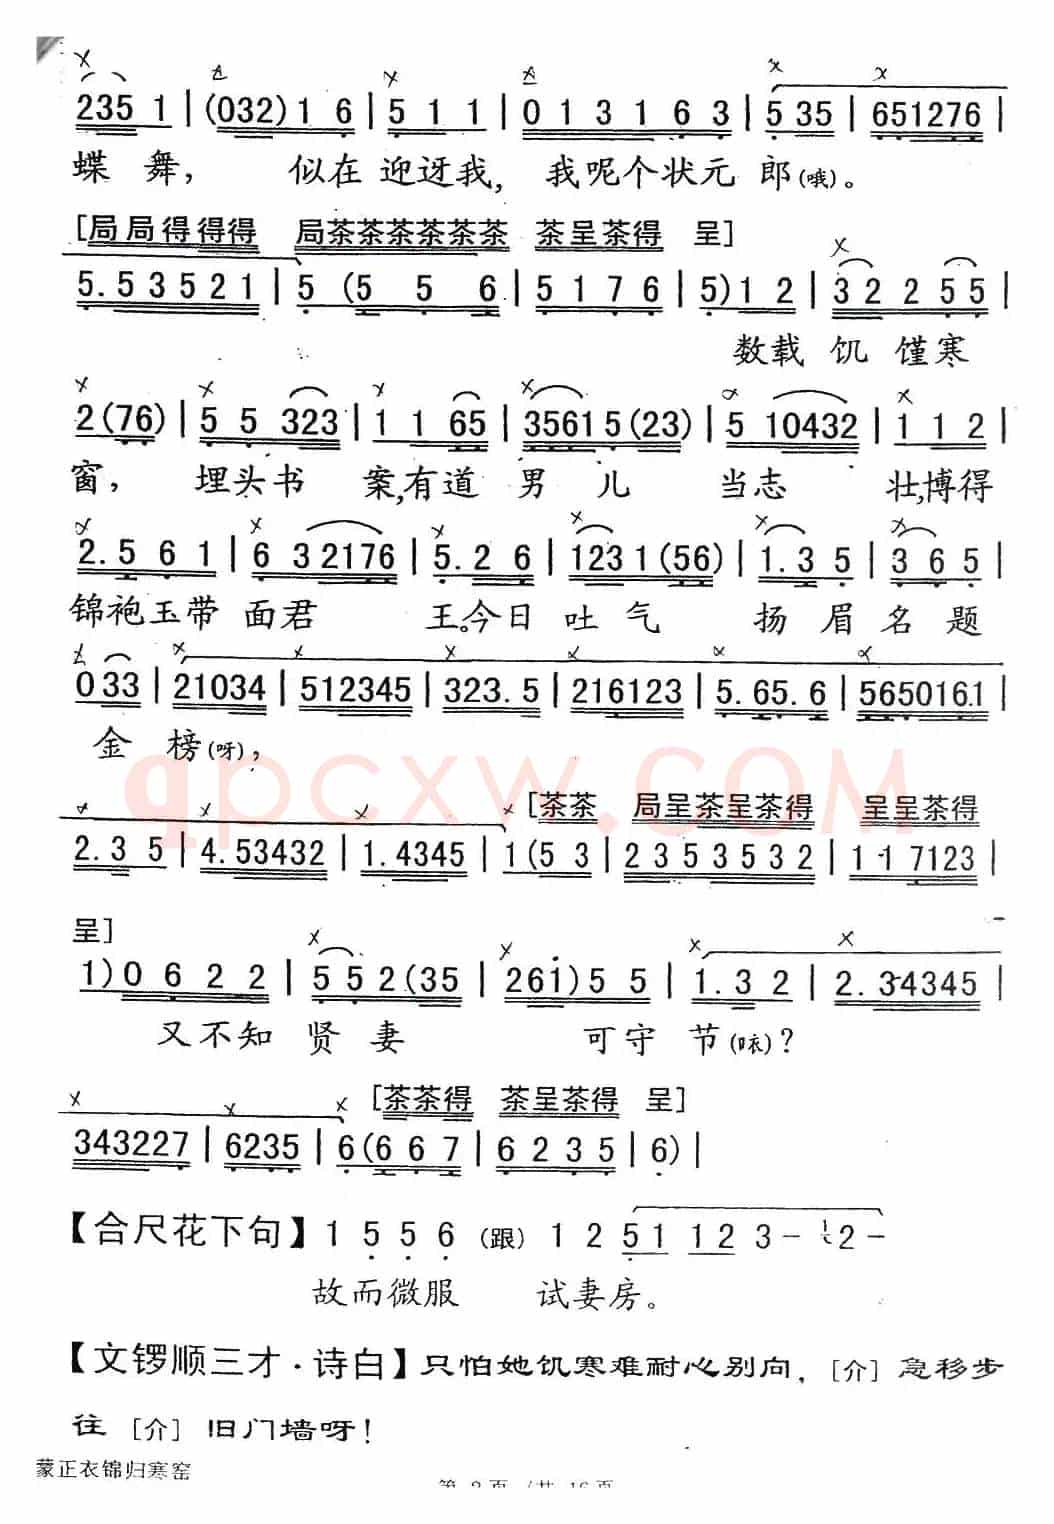 235 1 | (032) 1 6 | 5 1 1 | 0 1 3 1 6 3 | 5 35 | 651276 |
蝶 舞， 似在 迎迓我, 我呢个状元 郎(哦)。
[局局得得得 局茶茶茶茶茶茶 茶呈茶得 呈]
5.5 3 5 2 1 | 5 (5 5 6 | 5 1 7 6 | 5) 1 2 | 3 2 2 5 5 |
数载 饥 馑寒
2 (76) | 5 5 323 | 1 1 65 | 3561 5 (23) | 5 10432 | 1 1 2 |
窗， 埋头书 案,有道 男 儿 当志 壮,博得
2.5 6 1 | 6 3 2176 | 5.2 6 | 123 1 (56) | 1.3 5 | 3 6 5 |
锦袍玉带 面君 王。今日 吐 气 扬 眉 名 题
0 33 | 21034 | 512345 | 323.5 | 216123 | 5.65.6 | 5650161 |
金 榜(呀)，
qpcxw.COM
[茶茶 局呈茶呈茶得 呈呈茶得
2.3 5 | 4.53432 | 1.4345 | 1 (5 3 | 2 3 5 3 5 3 2 | 1 1 7123 |
呈]
1) 0 6 2 2 | 5 5 2 (35 | 26i) 5 5 | 1.3 2 | 2.34345 |
又不知 贤 妻 可守 节(咊)?
[茶茶得 茶呈茶得 呈]
343227 | 6235 | 6 (6 6 7 | 6 2 3 5 | 6) |
【合尺花下句】1 5 5 6 (跟) 1 2 51 12 3 – 2 –
故而微服 试妻房。
【文锣顺三才·诗白】只怕她饥寒难耐心别向，[介] 急移步
往 [介] 旧门墙呀！
蒙正衣锦归寒窑
第 2 页 /共 16 页